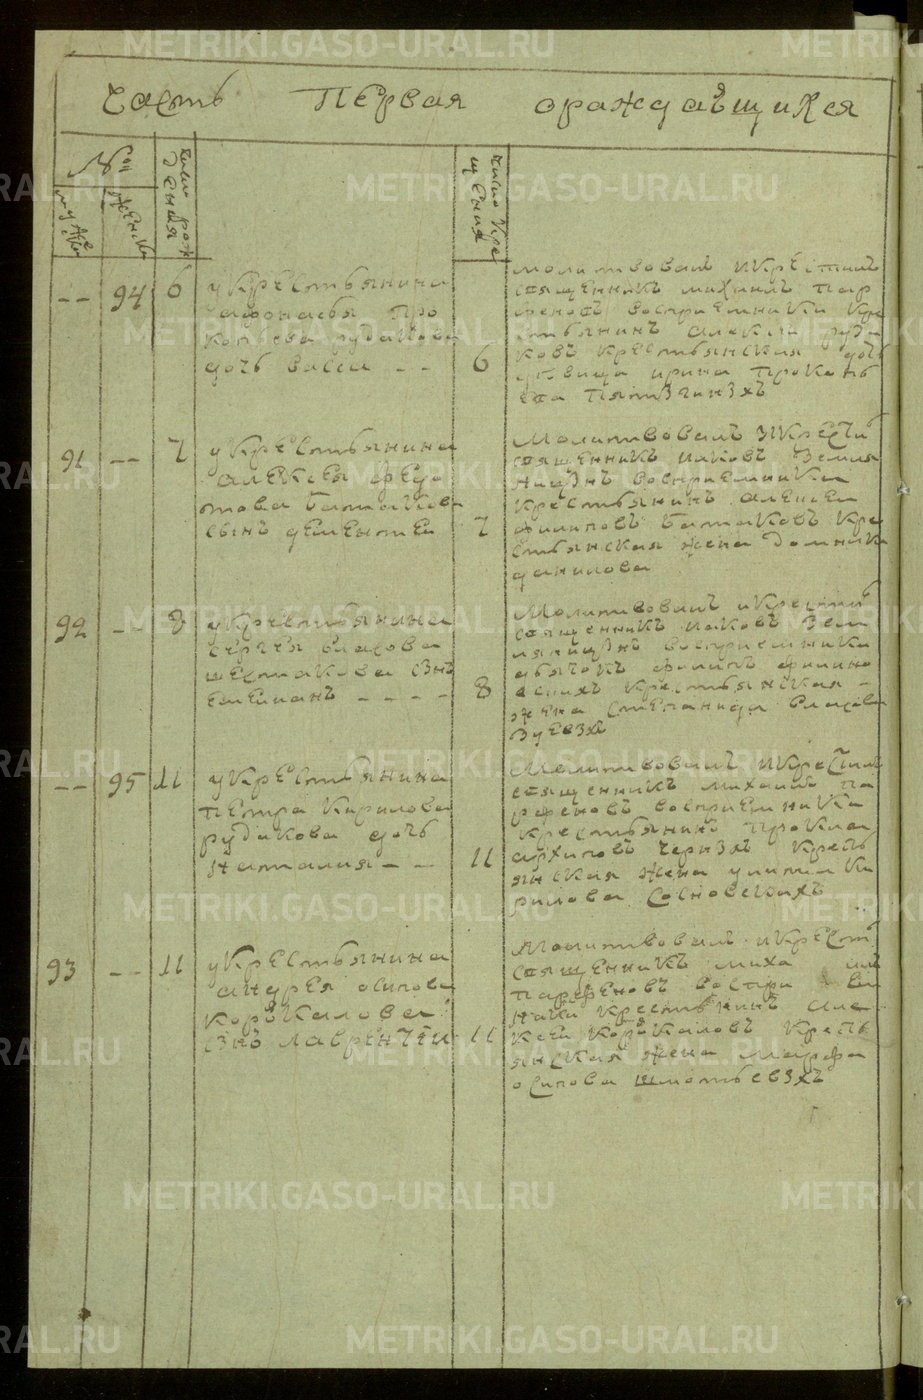 Часть Первая ораждаѣщихся
№ои
число рож
дения
число кре
щения
муже
женски
-- 94 6
у крестьянина
афонасья Про
копьева рудакова
дочь васса - -
6
молитвовалъ икрестилъ
священникъ михаилъ пар
феновъ восприемники кре
стьянинъ алексеи руда
ковъ крестьянская дочь
девица ирина
91 -- 7
у крестьянина
алексея федо
това батакова
сынъ дементеи
7
Молитвовалъ икрестил
священникъ иаковъ земля
ницынъ восприемники
крестьянинъ алексеи
филиповъ батаковъ кре
стьянская жена домника
данилова
92 -- 8
у крестьянина
сергея власова
шестакова сынъ
емелианъ - - - -
8
Молитвовалъ икрестил
священникъ иаковъ земл
яницынъ восприемники
дьячокъ филипъ филипо
крестьянская -
жена степанида власова
зуевзхъ
-- 95 11
у крестьянина
петра кирилова
рудакова дочь
наталия - -
11
Молитвовалъ икрестилъ
священникъ михаилъ па
рфеновъ восприемники
крестьянинъ
архиповъ чернзхъ кресть
янская жена улита ки
рилова сосновскихъ
93 -- 11
у крестьянина
андрея осипова
корокалова
сзнъ лаврентеи
11
Молитвовалъ икрестил
священникъ миха илъ
парфеновъ воспри ем
ники крестьянинъ але
ксеи корокаловъ кресть
янская жена марфа
осипова шмотьевзхъ
METRIKI.GASO-URAL.RU